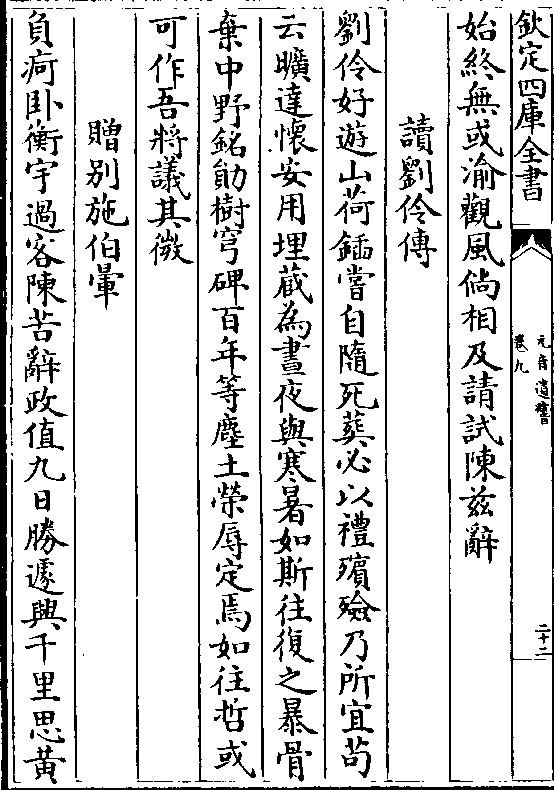 欽定四庫全書
元音遺響
卷九
二十二
始終無或渝觀風倘相及請試陳茲辭
讀劉伶傳
劉伶好遊山荷鍤嘗自隨死葬必以禮殯殮乃所宜茍
云曠達懷安用埋藏為晝夜與寒暑如斯往復之暴骨
棄中野銘勛樹穹碑百年等塵土榮辱定焉如往哲或
可作吾將議其微
贈别施伯暈
負疴卧衡宇過客陳苦辭政值九日勝遽與千里思黄